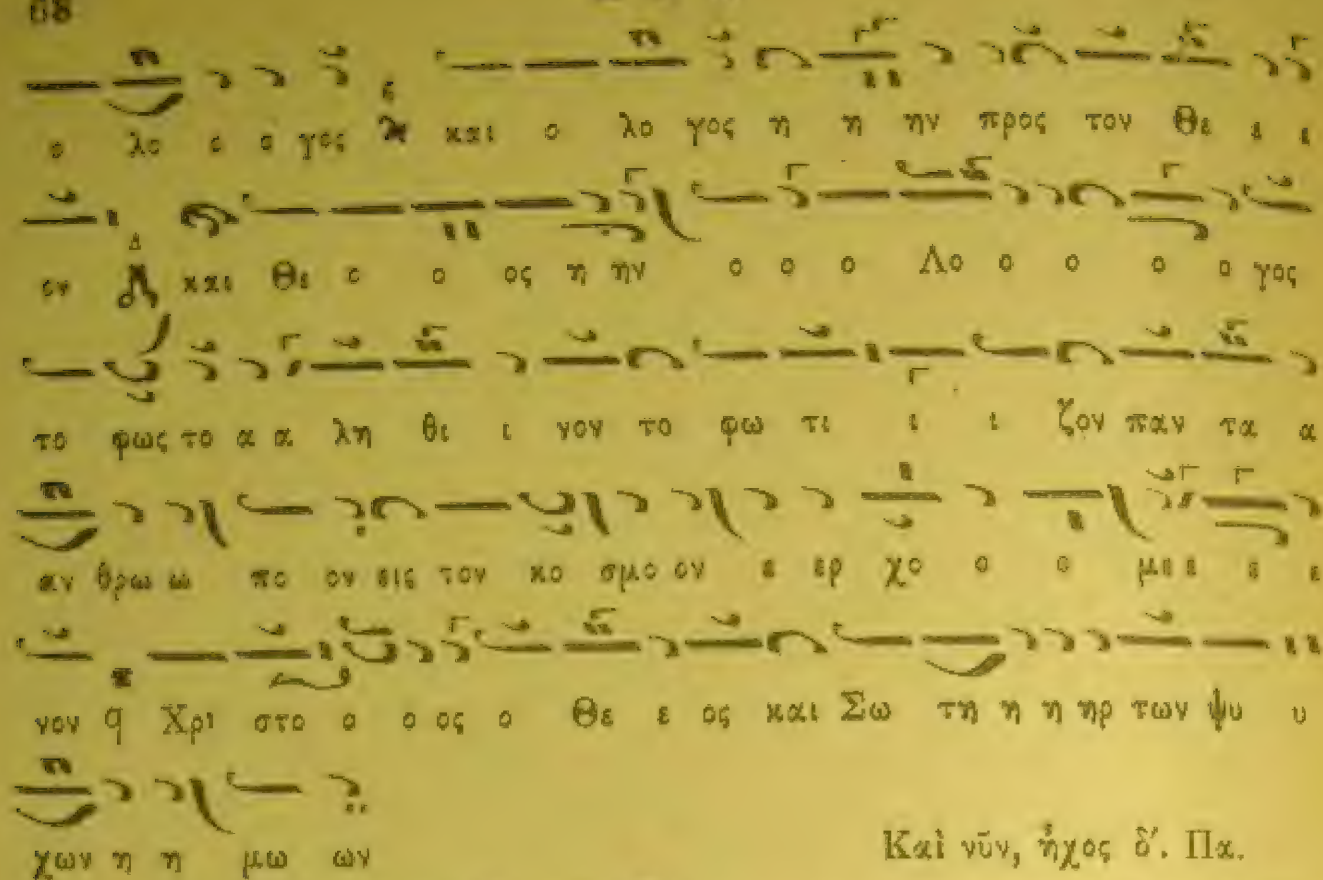 68
ο λο ο ο γος και ο λο γος η η ην προς τον Θε ε ε
ον Δ και Θε ε ο ος η ην ο ο ο Λο ο ο ο ο γος
το φως το α α λη θι ι νον το φω τι ι ι ζον παν τα α
αν θρω ω πο ον εις τον κο σμο ον ε ερ χο ο ο με ε ε ε
νον q Χρι στο ο ο ος ο Θε ε ος και Σω τη η η ηρ των ψυ υ
χων η η μω ων
Καὶ νῦν, ἦχος δ'. Πα.